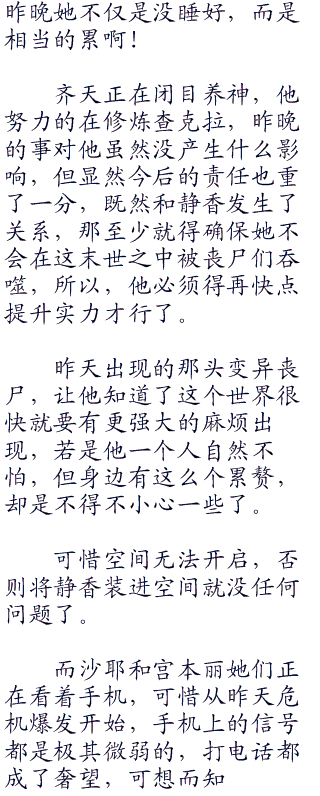 昨晚她不仅是没睡好，而是
相当的累啊！
齐天正在闭目养神，他
努力的在修炼查克拉，昨晚
的事对他虽然没产生什么影
响，但显然今后的责任也重
了一分，既然和静香发生了
关系，那至少就得确保她不
会在这末世之中被丧尸们吞
噬，所以，他必须得再快点
提升实力才行了。
昨天出现的那头变异丧
尸，让他知道了这个世界很
快就要有更强大的麻烦出
现，若是他一个人自然不
怕，但身边有这么个累赘，
却是不得不小心一些了。
可惜空间无法开启，否
则将静香装进空间就没任何
问题了。
而沙耶和宫本丽她们正
在看着手机，可惜从昨天危
机爆发开始，手机上的信号
都是极其微弱的，打电话都
成了奢望，可想而知